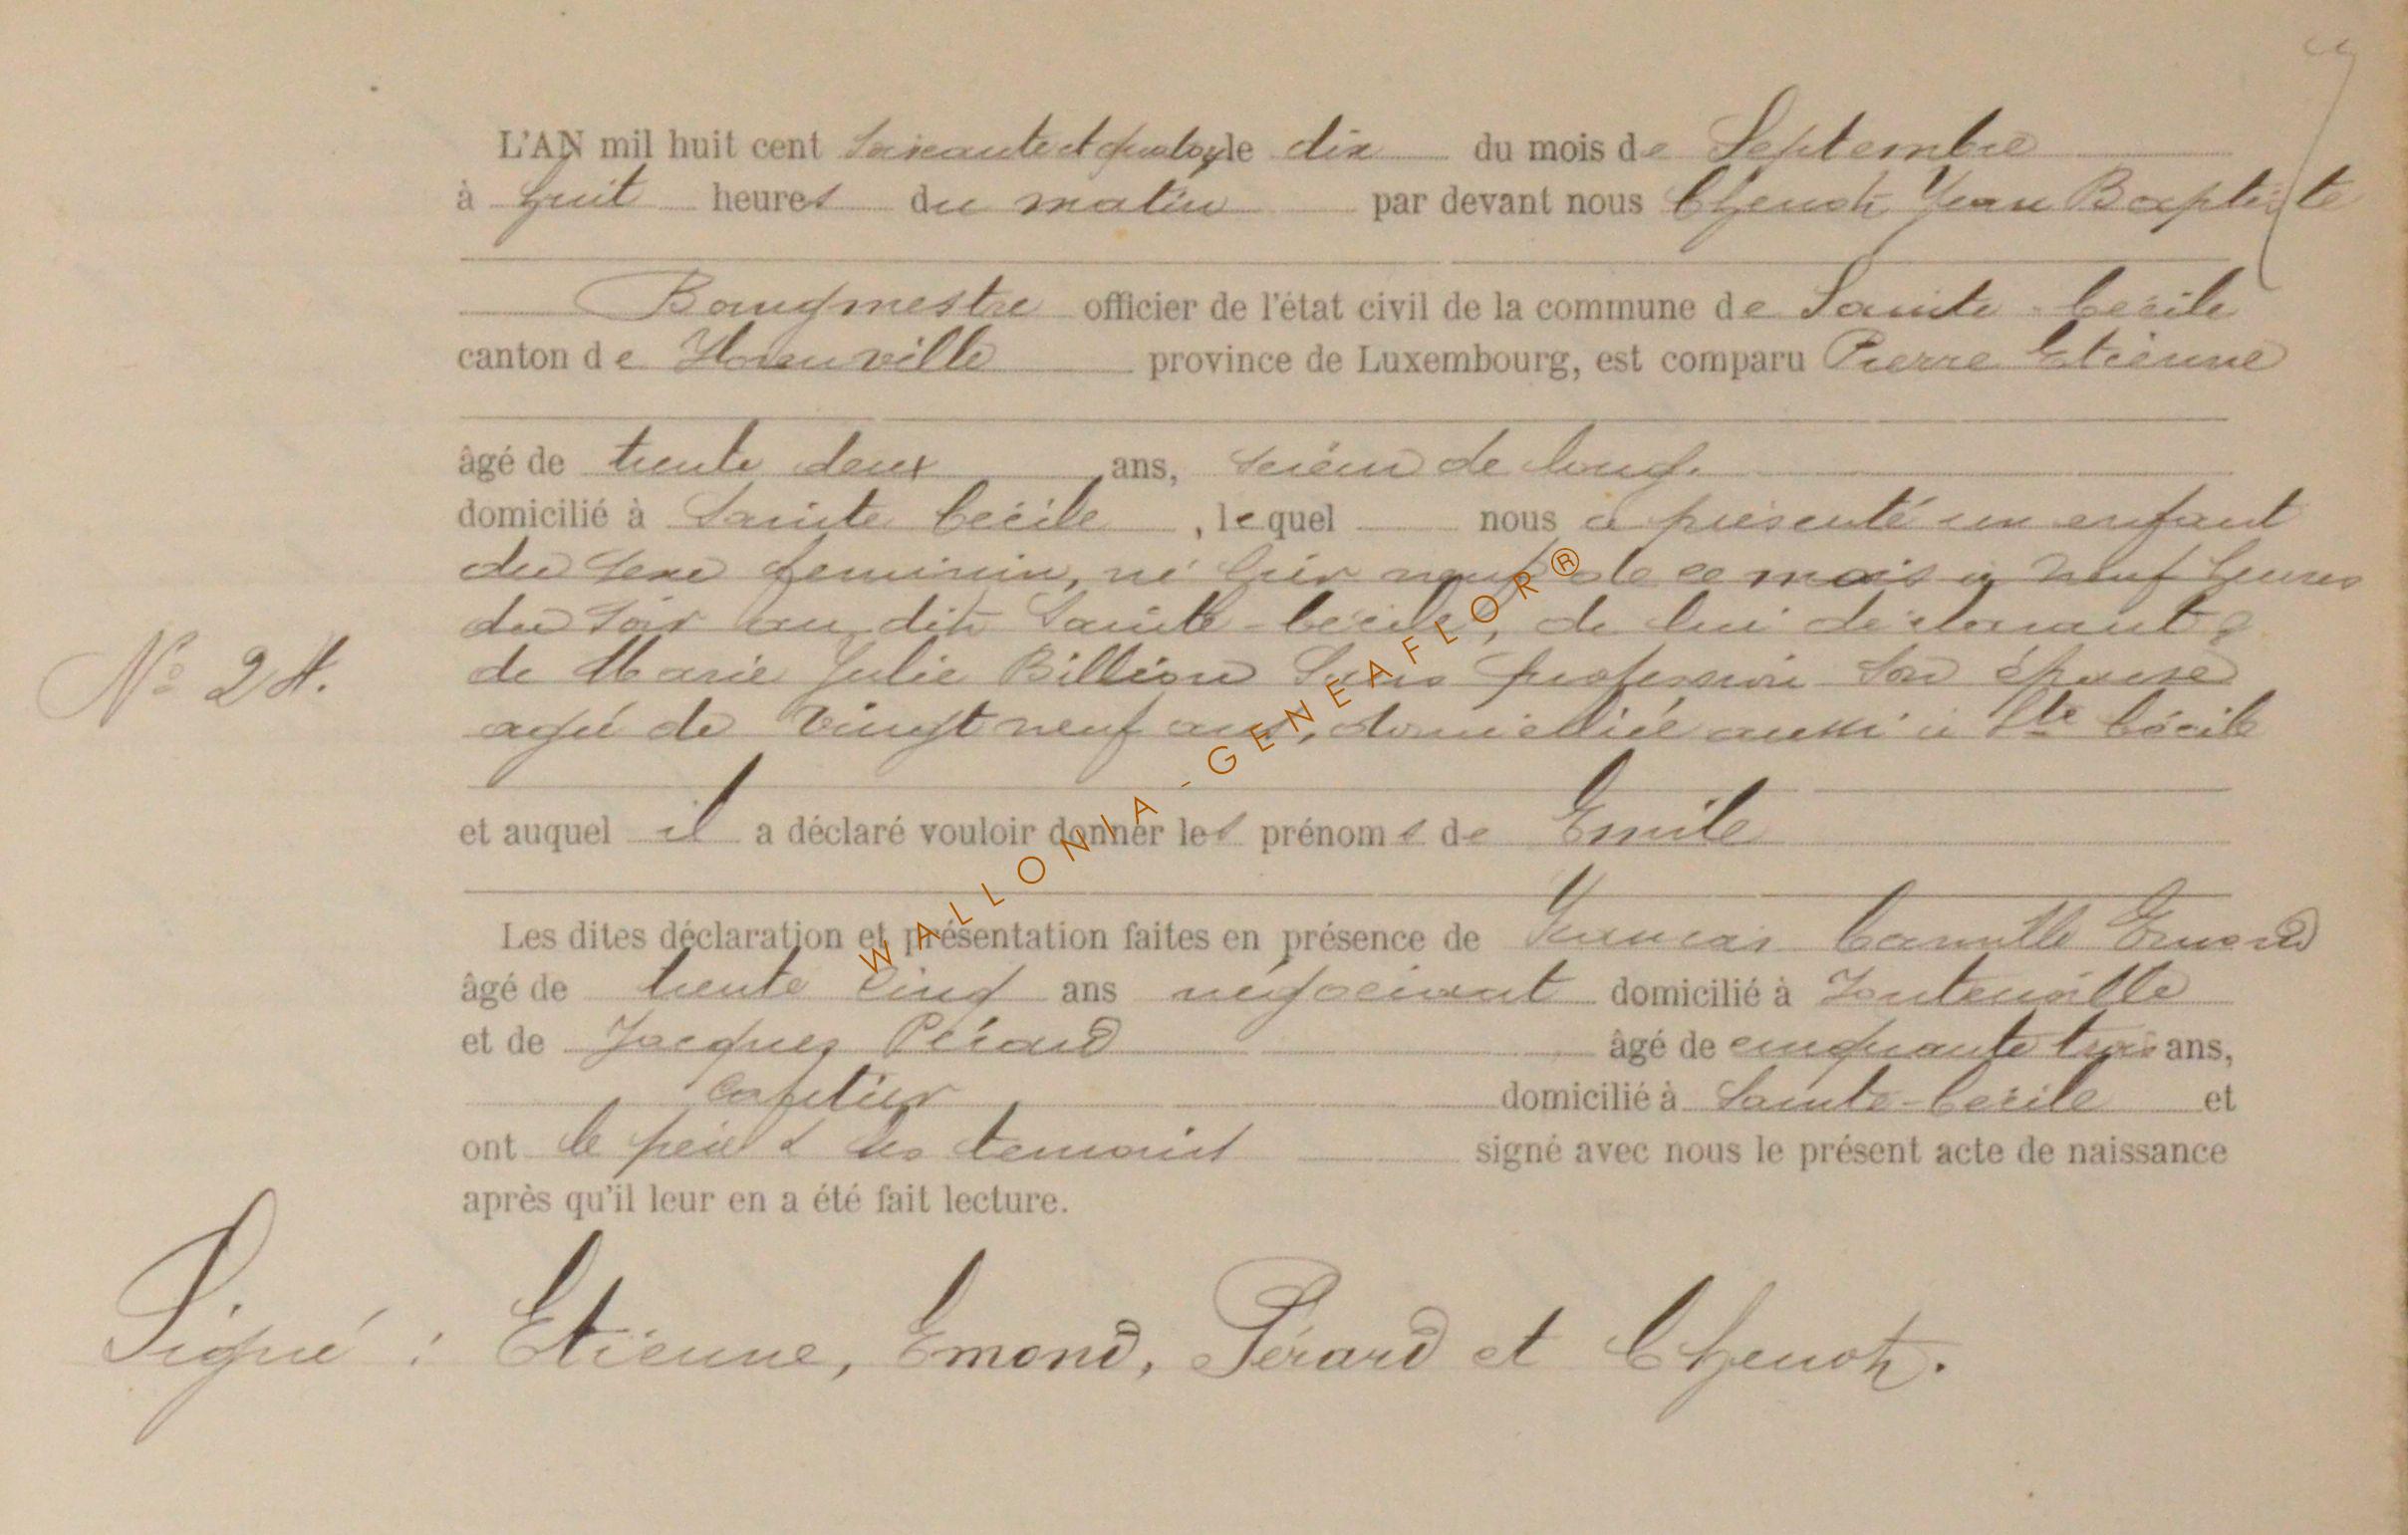 L'AN mil huit cent soixante et quatorze le dix du mois de Septembre
à huit heures du matin par devant nous Chenot Jean Baptiste
Bourgmestre officier de l'état civil de la commune de Sainte-Cécile
canton de Florenville province de Luxembourg, est comparu Pierre Etienne
âgé de trente deux ans, scieur de long,
domicilié à Sainte Cécile, lequel nous a présenté un enfant
du sexe feminin, né hier neuf de ce mois à neuf heures
du soir au dit Sainte-Cécile, de lui déclarant &
de Marie Julie Billion sans profession son épouse
agée de vingt neuf ans, domiciliée aussi à Ste Cécile
et auquel il a déclaré vouloir donner les prénoms de Emile
Les dites déclaration et présentation faites en présence de François Camille Emond
âgé de trente cinq ans négociant domicilié à Fontenoille
et de Jacques Pérard âgé de cinquante trois ans,
cafetier domicilié à Sainte-Cécile et
ont le père & les temoins signé avec nous le présent acte de naissance
après qu'il leur en a été fait lecture.
N° 24.
Signé : Etienne, Emond, Pérard et Chenot.
WALLONIA-GENEAFLOR®